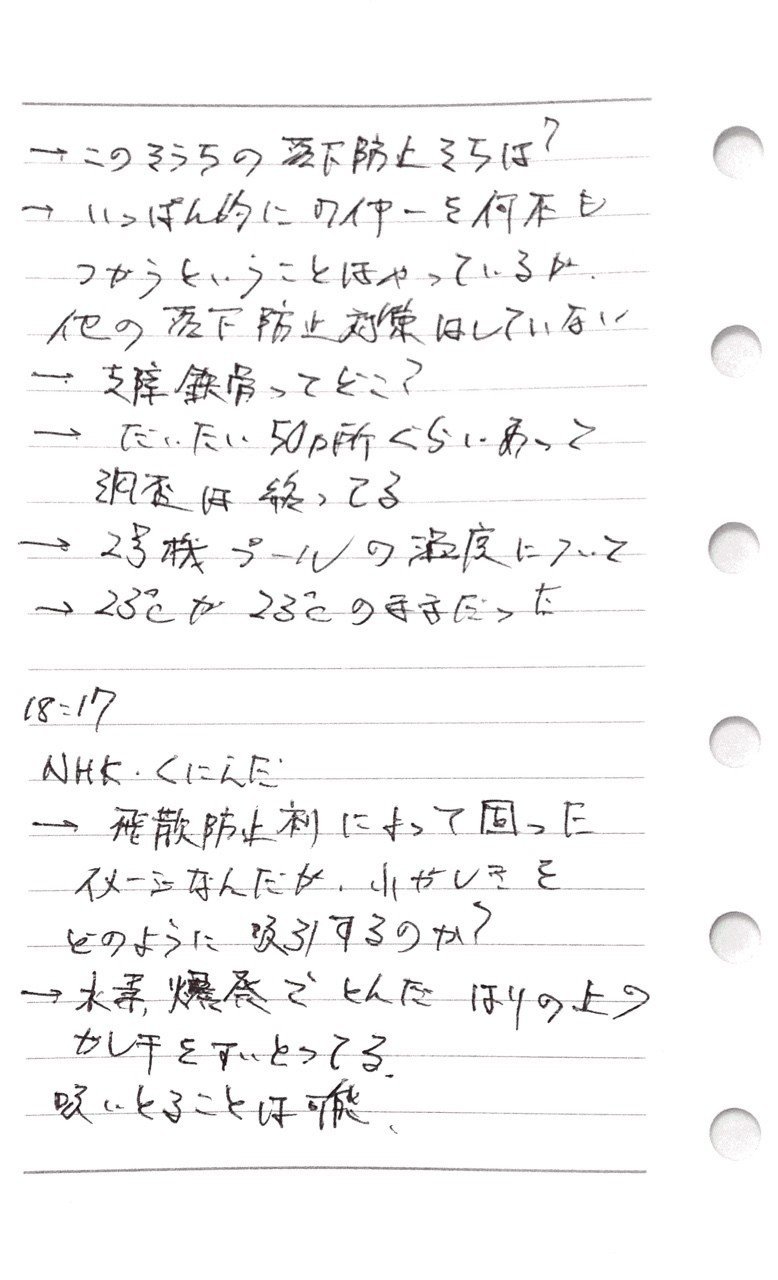 → このそうちの落下防止そちは?
→ いっぱん的にワイヤーを何本も
つかうということはやっているが、
他の落下防止対策はしていない
→ 支障鉄骨ってどこ?
→ だいたい50ヵ所ぐらいあって
調査は終ってる
→ 2号機プールの温度について
→ 23℃が23℃のままだった
18:17
NHK・くにんだ
→ 飛散防止剤によって固った
イメージなんだが、小がれきを
どのように吸引するのか?
→ 水素爆発でとんだはりの上の
がレキをすいとってる、
吸いとることは可能、